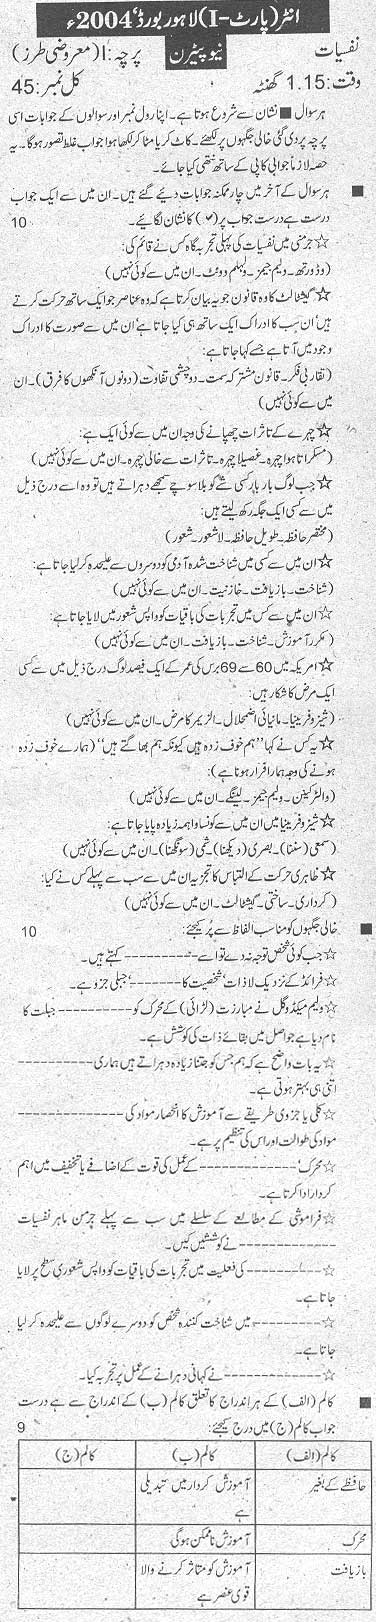 انٹر (پارٹ-I) لاہور بورڈ، 2004ء
نفسیات نیو پیٹرن پرچہ: I (معروضی طرز)
وقت: 1.15 گھنٹہ کل نمبر: 45
ہر سوال ■ نشان سے شروع ہوتا ہے۔ اپنا رول نمبر اور سوالوں کے جوابات اسی
پرچہ پر دی گئی خالی جگہوں پر لکھئے۔ کاٹ کر یا مٹا کر لکھا ہوا جواب غلط تصور ہوگا۔ یہ
حصہ لازماً جوابی کاپی کے ساتھ نتھی کیا جائے۔
■ ہر سوال کے آخر میں چار ممکنہ جوابات دیئے گئے ہیں۔ ان میں سے ایک جواب
درست ہے درست جواب پر (✓) کا نشان لگائیے۔ 10
☆ جرمنی میں نفسیات کی پہلی تجربہ گاہ کس نے قائم کی:
(وڈورتھ۔ ولیم جیمز۔ ولہلم وونٹ۔ ان میں سے کوئی نہیں)
☆ گیشٹالٹ کا وہ قانون جو یہ بیان کرتا ہے کہ وہ عناصر جو ایک ساتھ حرکت کرتے
ہیں ان سب کا ادراک ایک ساتھ ہی کیا جاتا ہے ان میں سے صورت کا ادراک
وجود میں آتا ہے جسے کہا جاتا ہے:
(تقاربی فکر۔ قانون مشترکہ سمت۔ دو چشمی تفاوت (دونوں آنکھوں کا فرق)۔ ان
میں سے کوئی نہیں)
☆ چہرے کے تاثرات چھپانے کی وجہ ان میں سے کوئی ایک ہے:
(مسکراتا ہوا چہرہ۔ غصیلا چہرہ۔ تاثرات سے خالی چہرہ۔ ان میں سے کوئی نہیں)
☆ جب لوگ بار بار کسی شے کو بلا سوچے سمجھے دہراتے ہیں تو وہ اسے درج ذیل
میں سے کسی ایک جگہ رکھ لیتے ہیں:
(مختصر حافظہ۔ طویل حافظہ۔ لاشعور۔ شعور)
☆ ان میں سے کسی میں شناخت شدہ آدمی کو دوسروں سے علیحدہ کر لیا جاتا ہے:
(شناخت۔ بازیافت۔ خازنیت۔ ان میں سے کوئی نہیں)
☆ ان میں سے کس میں تجربات کی باقیات کو واپس شعور میں لایا جاتا ہے:
(مکرر آموزش۔ شناخت۔ بازیافت۔ ان میں سے کوئی نہیں)
☆ امریکہ میں 60 سے 69 برس کی عمر کے ایک فیصد لوگ درج ذیل میں سے کسی
ایک مرض کا شکار ہیں:
(شیزوفرینیا۔ مانیائی اضمحلال۔ الزیمر کا مرض۔ ان میں سے کوئی نہیں)
☆ یہ کس نے کہا "ہم خوف زدہ ہیں کیونکہ ہم بھاگتے ہیں" (ہمارے خوف زدہ
ہونے کی وجہ ہمارا فرار ہوتا ہے):
(والٹر کینن۔ ولیم جیمز۔ لینگے۔ ان میں سے کوئی نہیں)
☆ شیزوفرینیا میں ان میں سے کونسا واہمہ زیادہ پایا جاتا ہے:
(سمعی (سننا)۔ بصری (دیکھنا)۔ شمی (سونگھنا)۔ ان میں سے کوئی نہیں)
☆ ظاہری حرکت کے التباس کا تجزیہ ان میں سے سب سے پہلے کس نے کیا:
(کرداری۔ ساختی۔ گیشٹالٹ۔ ان میں سے کوئی نہیں)
■ خالی جگہوں کو مناسب الفاظ سے پُر کیجئے: 10
☆ جب کوئی شخص توجہ نہ دے تو اسے ---------- کہتے ہیں۔
☆ فرائڈ کے نزدیک لاذات شخصیت کا ---------- جبلی جزو ہے۔
☆ ولیم میکڈوگل نے مبارزت (لڑائی) کے محرک کو ---------- جبلت کا
نام دیا ہے جو اصل میں بقائے ذات کی کوشش ہے۔
☆ یہ بات واضح ہے کہ ہم جس کو جتنا زیادہ دہراتے ہیں ہماری ----------
اتنی ہی بہتر ہوتی ہے۔
☆ کلی یا جزوی طریقے سے آموزش کا انحصار مواد کی ----------
مواد کی طوالت اور اس کی تنظیم پر ہے۔
☆ محرک، ---------- کے عمل کی قوت کے اضافے یا تخفیف میں اہم
کردار ادا کرتا ہے۔
☆ فراموشی کے مطالعے کے سلسلے میں سب سے پہلے جرمن ماہر نفسیات
---------- نے کوششیں کیں۔
☆ ---------- کی فعلیت میں تجربات کی باقیات کو واپس شعوری سطح پر لایا
جاتا ہے۔
☆ ---------- میں شناخت کنندہ شخص کو دوسرے لوگوں سے علیحدہ کر لیا
جاتا ہے۔
☆ ---------- نے کہانی دہرانے کے عمل پر تجربہ کیا۔
■ کالم (الف) کے ہر اندراج کا تعلق کالم (ب) کے اندراج سے ہے درست
جواب کالم (ج) میں درج کیجئے: 9
کالم (الف) کالم (ب) کالم (ج)
حافظے کے بغیر آموزش کردار میں تبدیلی
ہے
محرک آموزش ناممکن ہوگی
بازیافت آموزش کو متاثر کرنے والا
قوی عنصر ہے